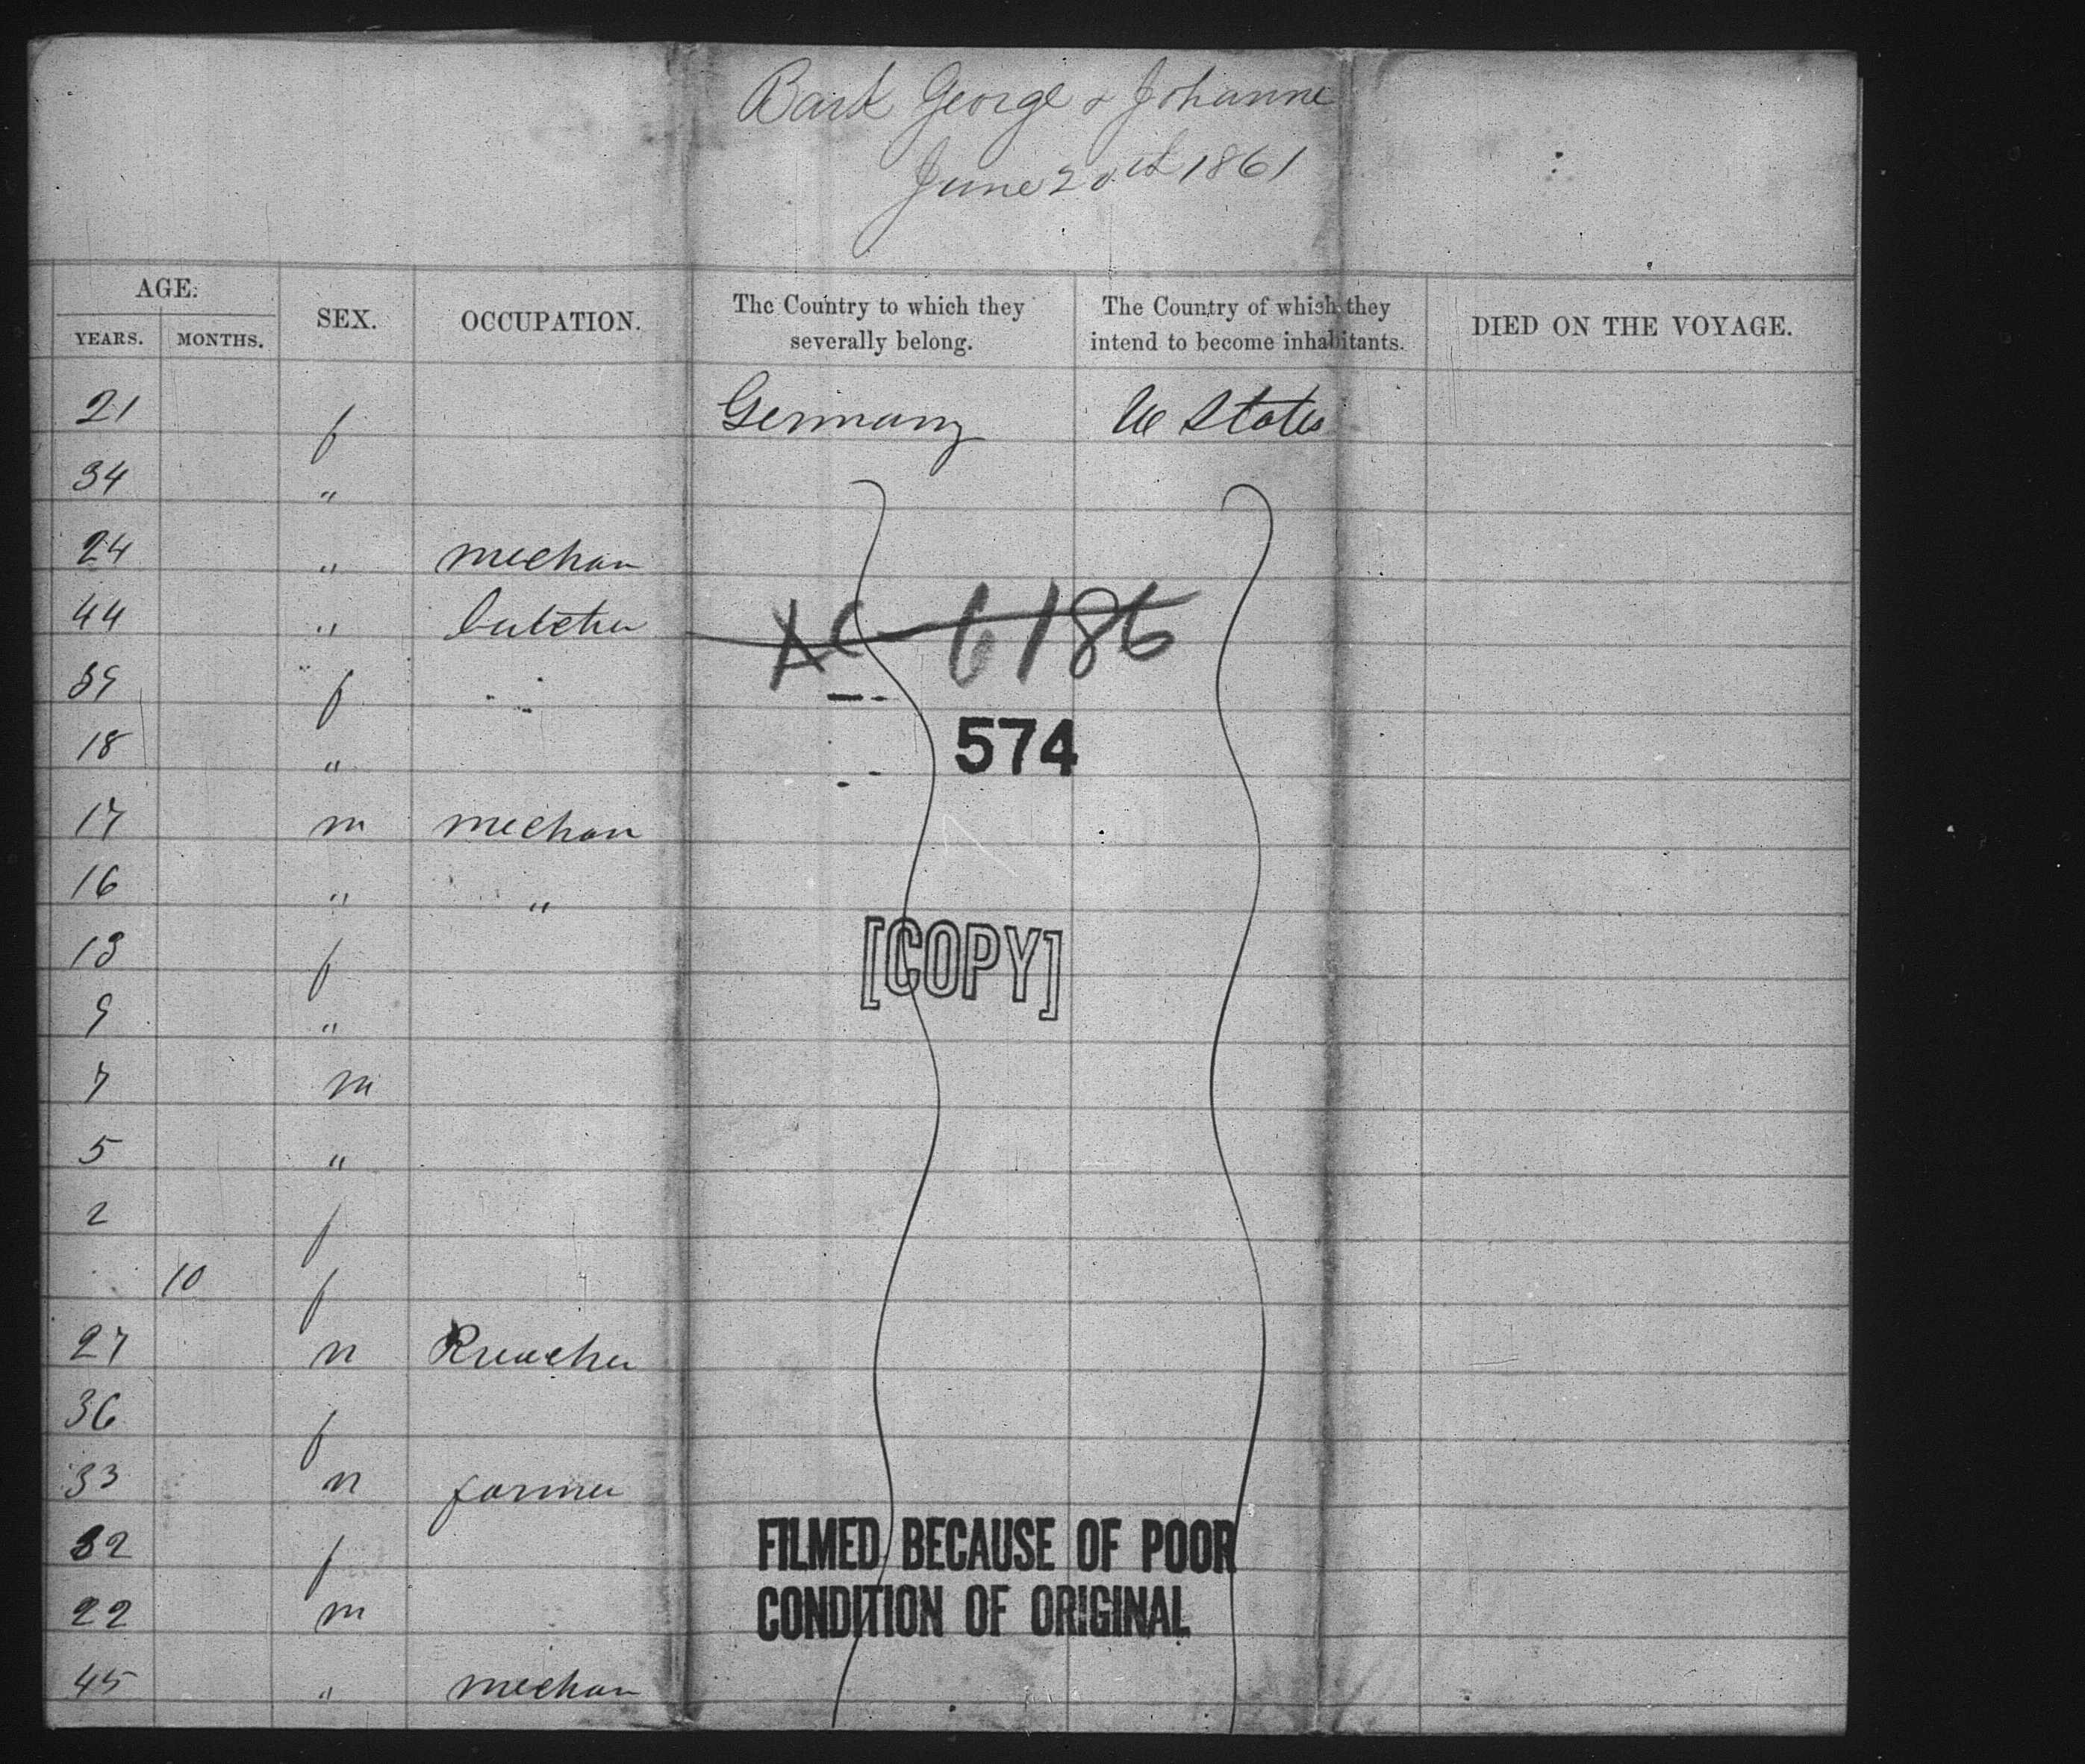 Bark George & Johanne
June 20th 1861
AGE: SEX. OCCUPATION. The Country to which they severally belong. The Country of which they intend to become inhabitants. DIED ON THE VOYAGE.
YEARS. MONTHS.
21 f Germany U States
34 "
24 " mechan
44 " butcher
39 f
AC 6186
18 "
574
17 m mechan
16 " "
13 f
[COPY]
9 "
7 m
5 "
2 f
10 f
27 m Preacher
36 f
33 m farmer
32 f
FILMED BECAUSE OF POOR
22 m
CONDITION OF ORIGINAL
45 " mechan